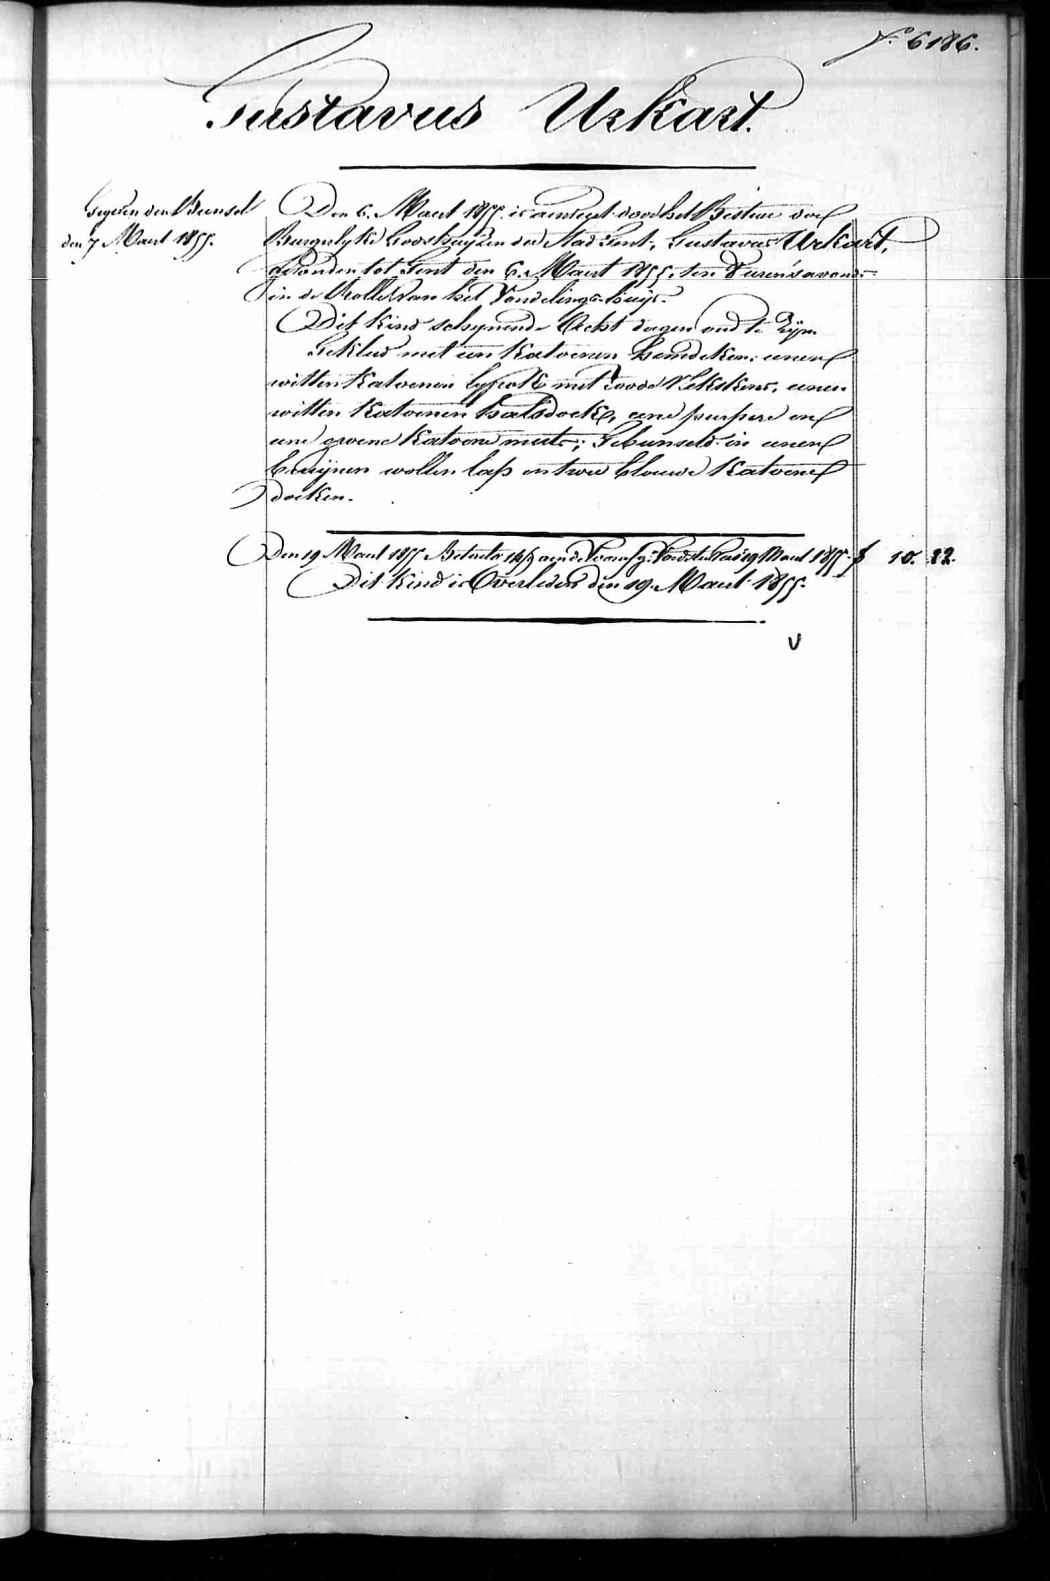 f.° 6186.
Gustavus Urkart.
Gegeven den Bunsel
den 7 Maert 1855.
Den 6. Maert 1855. is aenveert door het Bestier der
Burgelyke Godshuyzen der Stad Gent, Gustavus Urkart,
gevonden tot Gent den 6. Maert 1855, ten uren 'savonds
in de Rolle van het Vondelings-huys.
Dit kind schynende Acht dagen oud te zyn.
Gekleed met een katoenen hemdeken, eenen
witten katoenen lyfrok met roode Plekskens, eenen
witten katoenen halsdoek, eene purpere en
eene groene katoene muts; Gebunseld in eenen
bruynen wollen lap en twee blauwe katoene
doeken.
Den 19 Maert 1855 Betaeld aen de 19 Maert 1855. f 10. 22.
Dit kind is Overleden den 19. Maert 1855.
V